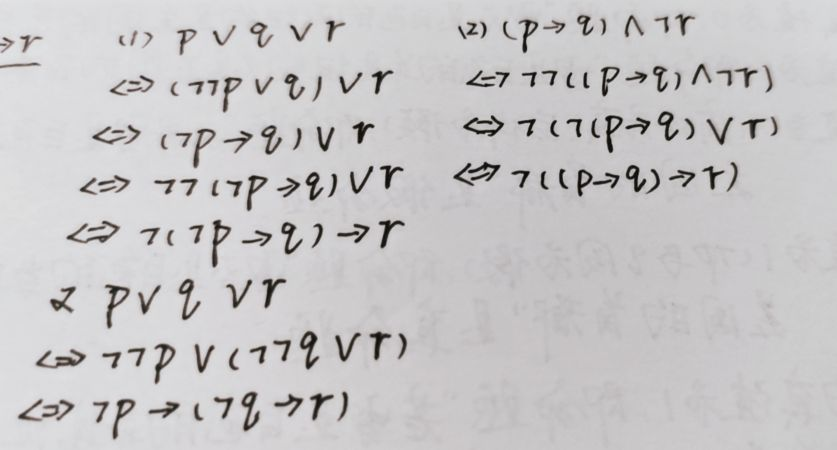 →r
(1) p ∨ q ∨ r
⇔ (¬¬p ∨ q) ∨ r
⇔ (¬p → q) ∨ r
⇔ ¬¬(¬p → q) ∨ r
⇔ ¬(¬p → q) → r
又 p ∨ q ∨ r
⇔ ¬¬p ∨ (¬¬q ∨ r)
⇔ ¬p → (¬q → r)
(2) (p → q) ∧ ¬r
⇔ ¬¬((p → q) ∧ ¬r)
⇔ ¬(¬(p → q) ∨ r)
⇔ ¬((p → q) → r)